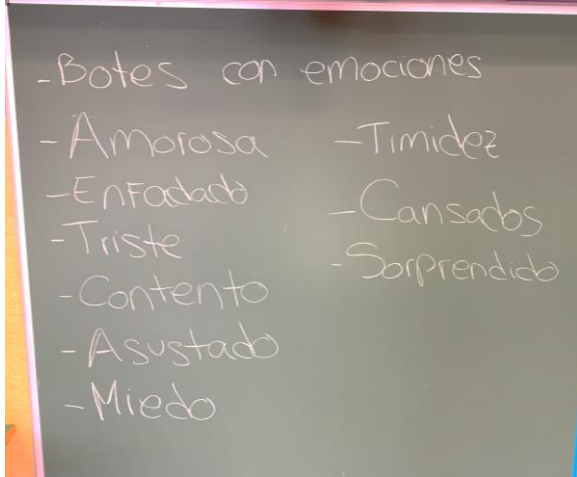 -Botes con emociones
-Amorosa
-Enfadado
-Triste
-Contento
-Asustado
-Miedo
-Timidez
-Cansados
-Sorprendido